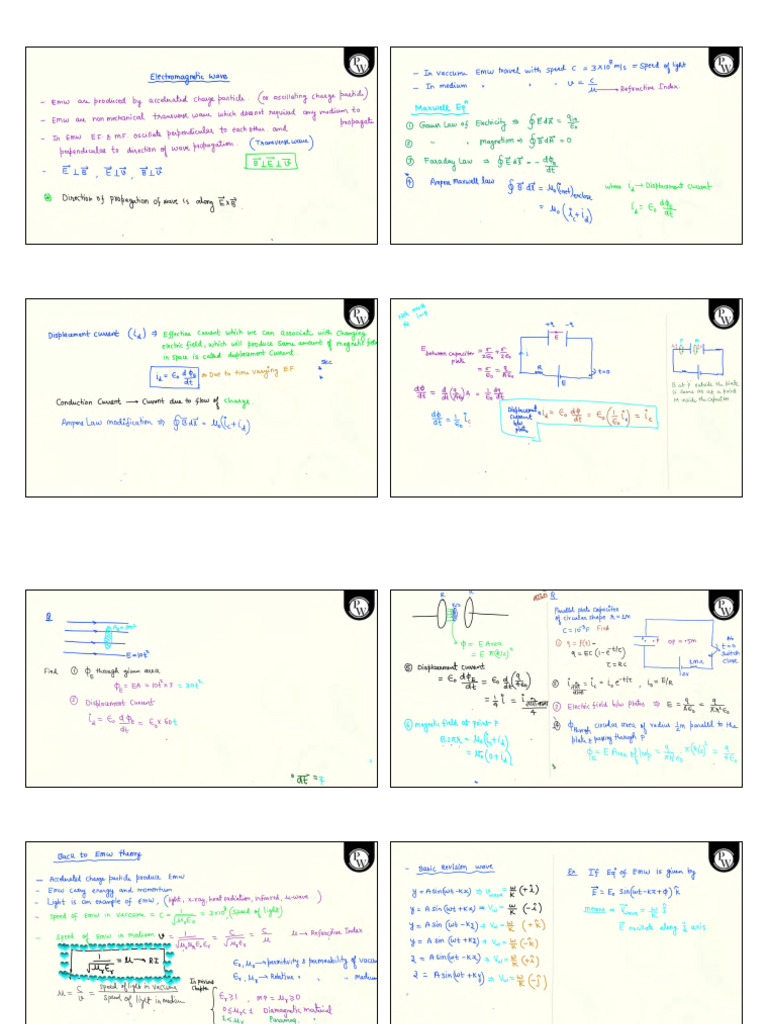 Electromagnetic wave
- EMW are produced by accelerated charge particle. (or oscillating charge particle)
- EMW are non mechanical transverse wave which doesnot required any medium to propagate
- In EMW E.F & M.F oscillate perpendicular to each other, and
perpendicular to direction of wave propagation. (Transverse wave)
B⃗ ⊥ E⃗ ⊥ V⃗
- E⃗ ⊥ B⃗ , E⃗ ⊥ V⃗ , B⃗ ⊥ V⃗
Direction of propagation of wave is along E⃗ × B⃗
PW
- In vaccume EMW travel with speed C = 3×10⁸ m/s = speed of light
- In medium " " " v = C/μ → Refractive Index
Maxwell Eqⁿ
① Gauss Law of Electricity ⇒ ∮E⃗ dA⃗ = qin/ε₀
② " " Magnetism ⇒ ∮B⃗ dA⃗ = 0
③ Faraday Law ⇒ ∮E⃗ dr⃗ = - dΦB/dt
④ Ampere Maxwell law ∮B⃗ dl⃗ = μ₀(inet)enclose
= μ₀(ic + id)
where id → Displacement Current
id = ε₀ dΦE/dt
PW
Displacement current (id) ⇒ Effective Current which we can associate with changing
electric field, which will produce same amount of magnetic field
in space is called displacement current.
id = ε₀ dΦE/dt ⇒ Due to time varying EF.
Conduction Current → Current due to flow of charge.
Ampere Law modification ⇒ ∮B⃗ dl⃗ = μ₀(ic + id)
PW
+q -q
E
E between capacitor plate = σ/2ε₀ + σ/2ε₀
= σ/ε₀ = q/Aε₀
R
E
t=0
dΦ/dt = d/dt (q/Aε₀) A = 1/ε₀ dq/dt
dΦ/dt = 1/ε₀ ic
Displacement current b/w plate id = ε₀ dΦ/dt = ε₀ (1/ε₀ ic) = ic
B at P outside the plate
is same as at a point
M inside the capacitor.
PW
Q
E = 10t²
Find ① ΦE through given area
ΦE = EA = 10t² × 3 = 30t²
② Displacement Current
id = ε₀ dΦE/dt = ε₀ × 60t
PW
R R
Φ = E Area
= E π(R/2)²
③ Displacement current
= ε₀ dΦE/dt = ε₀ d/dt (q/4ε₀)
= 1/4 i
⑥ magnetic field at point P
B 2πr = μ₀(ic + id)
= μ₀(0 + id)
Q
Parallel plate capacitor
of circular shape R = 2m
C = 10⁻⁹F Find
① q = f(t) -
q = EC(1 - e^(-t/τ))
τ = RC
t = 0
Switch
close
1MΩ
2V
② ic = i₀e^(-t/τ) , i₀ = E/R
③ Electric field b/w plates ⇒ E = q/Aε₀ = q/πR²ε₀
④ Φ through circular area of radius ½m parallel to the
plate & passing through P
ΦE = E Area of loop = q/πR²ε₀ × π(R/2)² = q/4ε₀
PW
Back to EMW theory
- Accelerated charge particle produce EMW
- EMW carry energy and momentum
- Light is an example of EMW, (light, x-ray, heat radiation, infrared, μ-wave)
- Speed of EMW in vaccume = C = 1/√μ₀ε₀ = 3×10⁸ (speed of light)
- Speed of EMW in medium v = 1/√μ₀μrε₀εr = C/√μrεr = C/μ μ → Refractive Index
1/√μrεr = μ → RI
μ = C/v = speed of light in vaccume / speed of light in medium
ε₀, μ₀ → permittivity & permeability of vaccume
εr, μr → Relative " " medium
In previous chapter
εr ≥ 1, μr ≥ 0
0 ≤ μr < 1 Diamagnetic material
1 < μr Paramag.
PW
- Basic Revision wave
y = A sin(ωt - kx) ⇒ Vwave = ω/k (+î)
y = A sin(ωt + kx) ⇒ Vω = ω/k (-î)
y = A sin(ωt - kz) ⇒ Vω = ω/k (+k̂)
y = A sin(ωt + kz) ⇒ Vω = ω/k (-k̂)
z = A sin(ωt - kx) ⇒ Vω = ω/k (+î)
z = A sin(ωt + ky) ⇒ Vω = ω/k (-ĵ)
Ex If Eqⁿ of EMW is given by
E⃗ = E₀ sin(ωt - kx + φ) k̂
means ⇒ V⃗wave = ω/k î
E⃗ oscillate along z axis.
PW